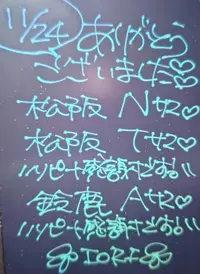 11/24 ありがとう
ございました♡
松阪 Nサン♡
松阪 Tサン♡
リピート感謝です!!
鈴鹿 Aサン♡
リピート感謝です!!